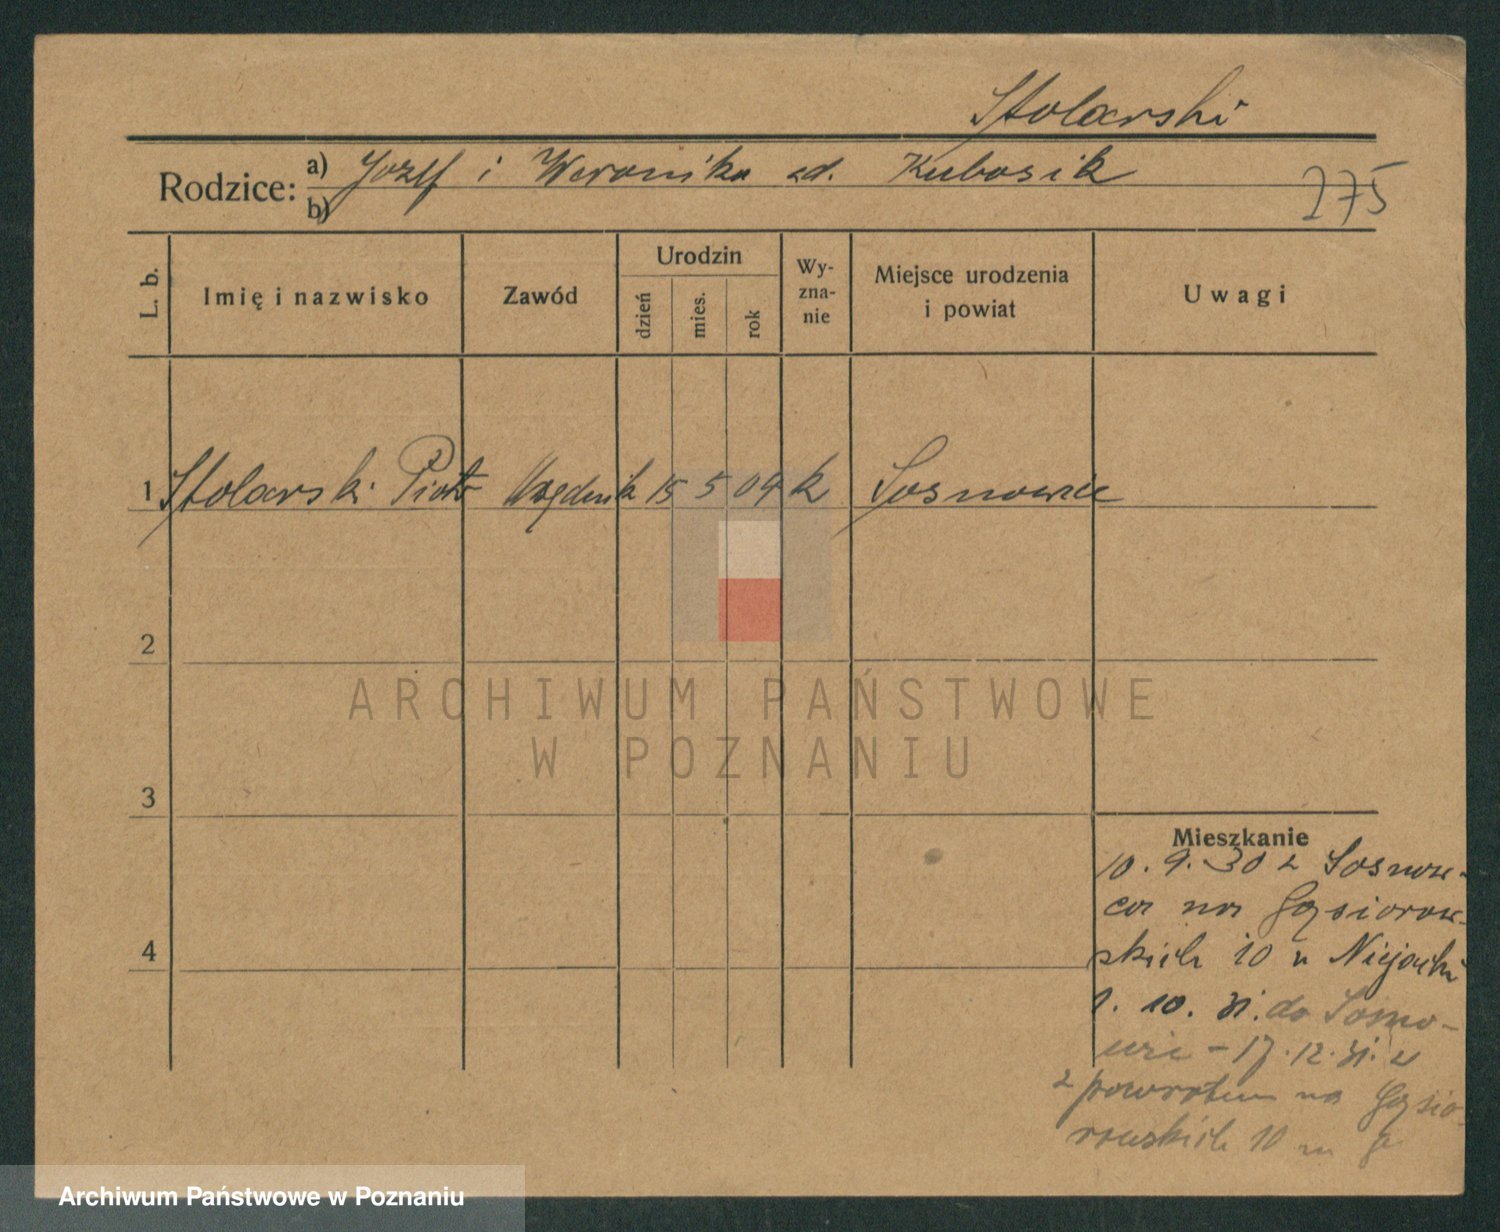 Stolarski
Rodzice: a) Józef i Weronika zd. Kubasik
b)
275
L. b.
Imię i nazwisko
Zawód
Urodzin
dzień
mies.
rok
Wy-
zna-
nie
Miejsce urodzenia
i powiat
Uwagi
1 Stolarski Piotr Urzędnik 15 5 04 k Sosnowiec
2
3
4
Mieszkanie
10. 9. 30 z Sosnow-
ca na Gąsiorow-
skich 10 u
1. 10. 31. do Sosno-
wic - 17. 12. 31. z
powrotem na Gąsio-
rowskich 10 m
ARCHIWUM PAŃSTWOWE
W POZNANIU
Archiwum Państwowe w Poznaniu